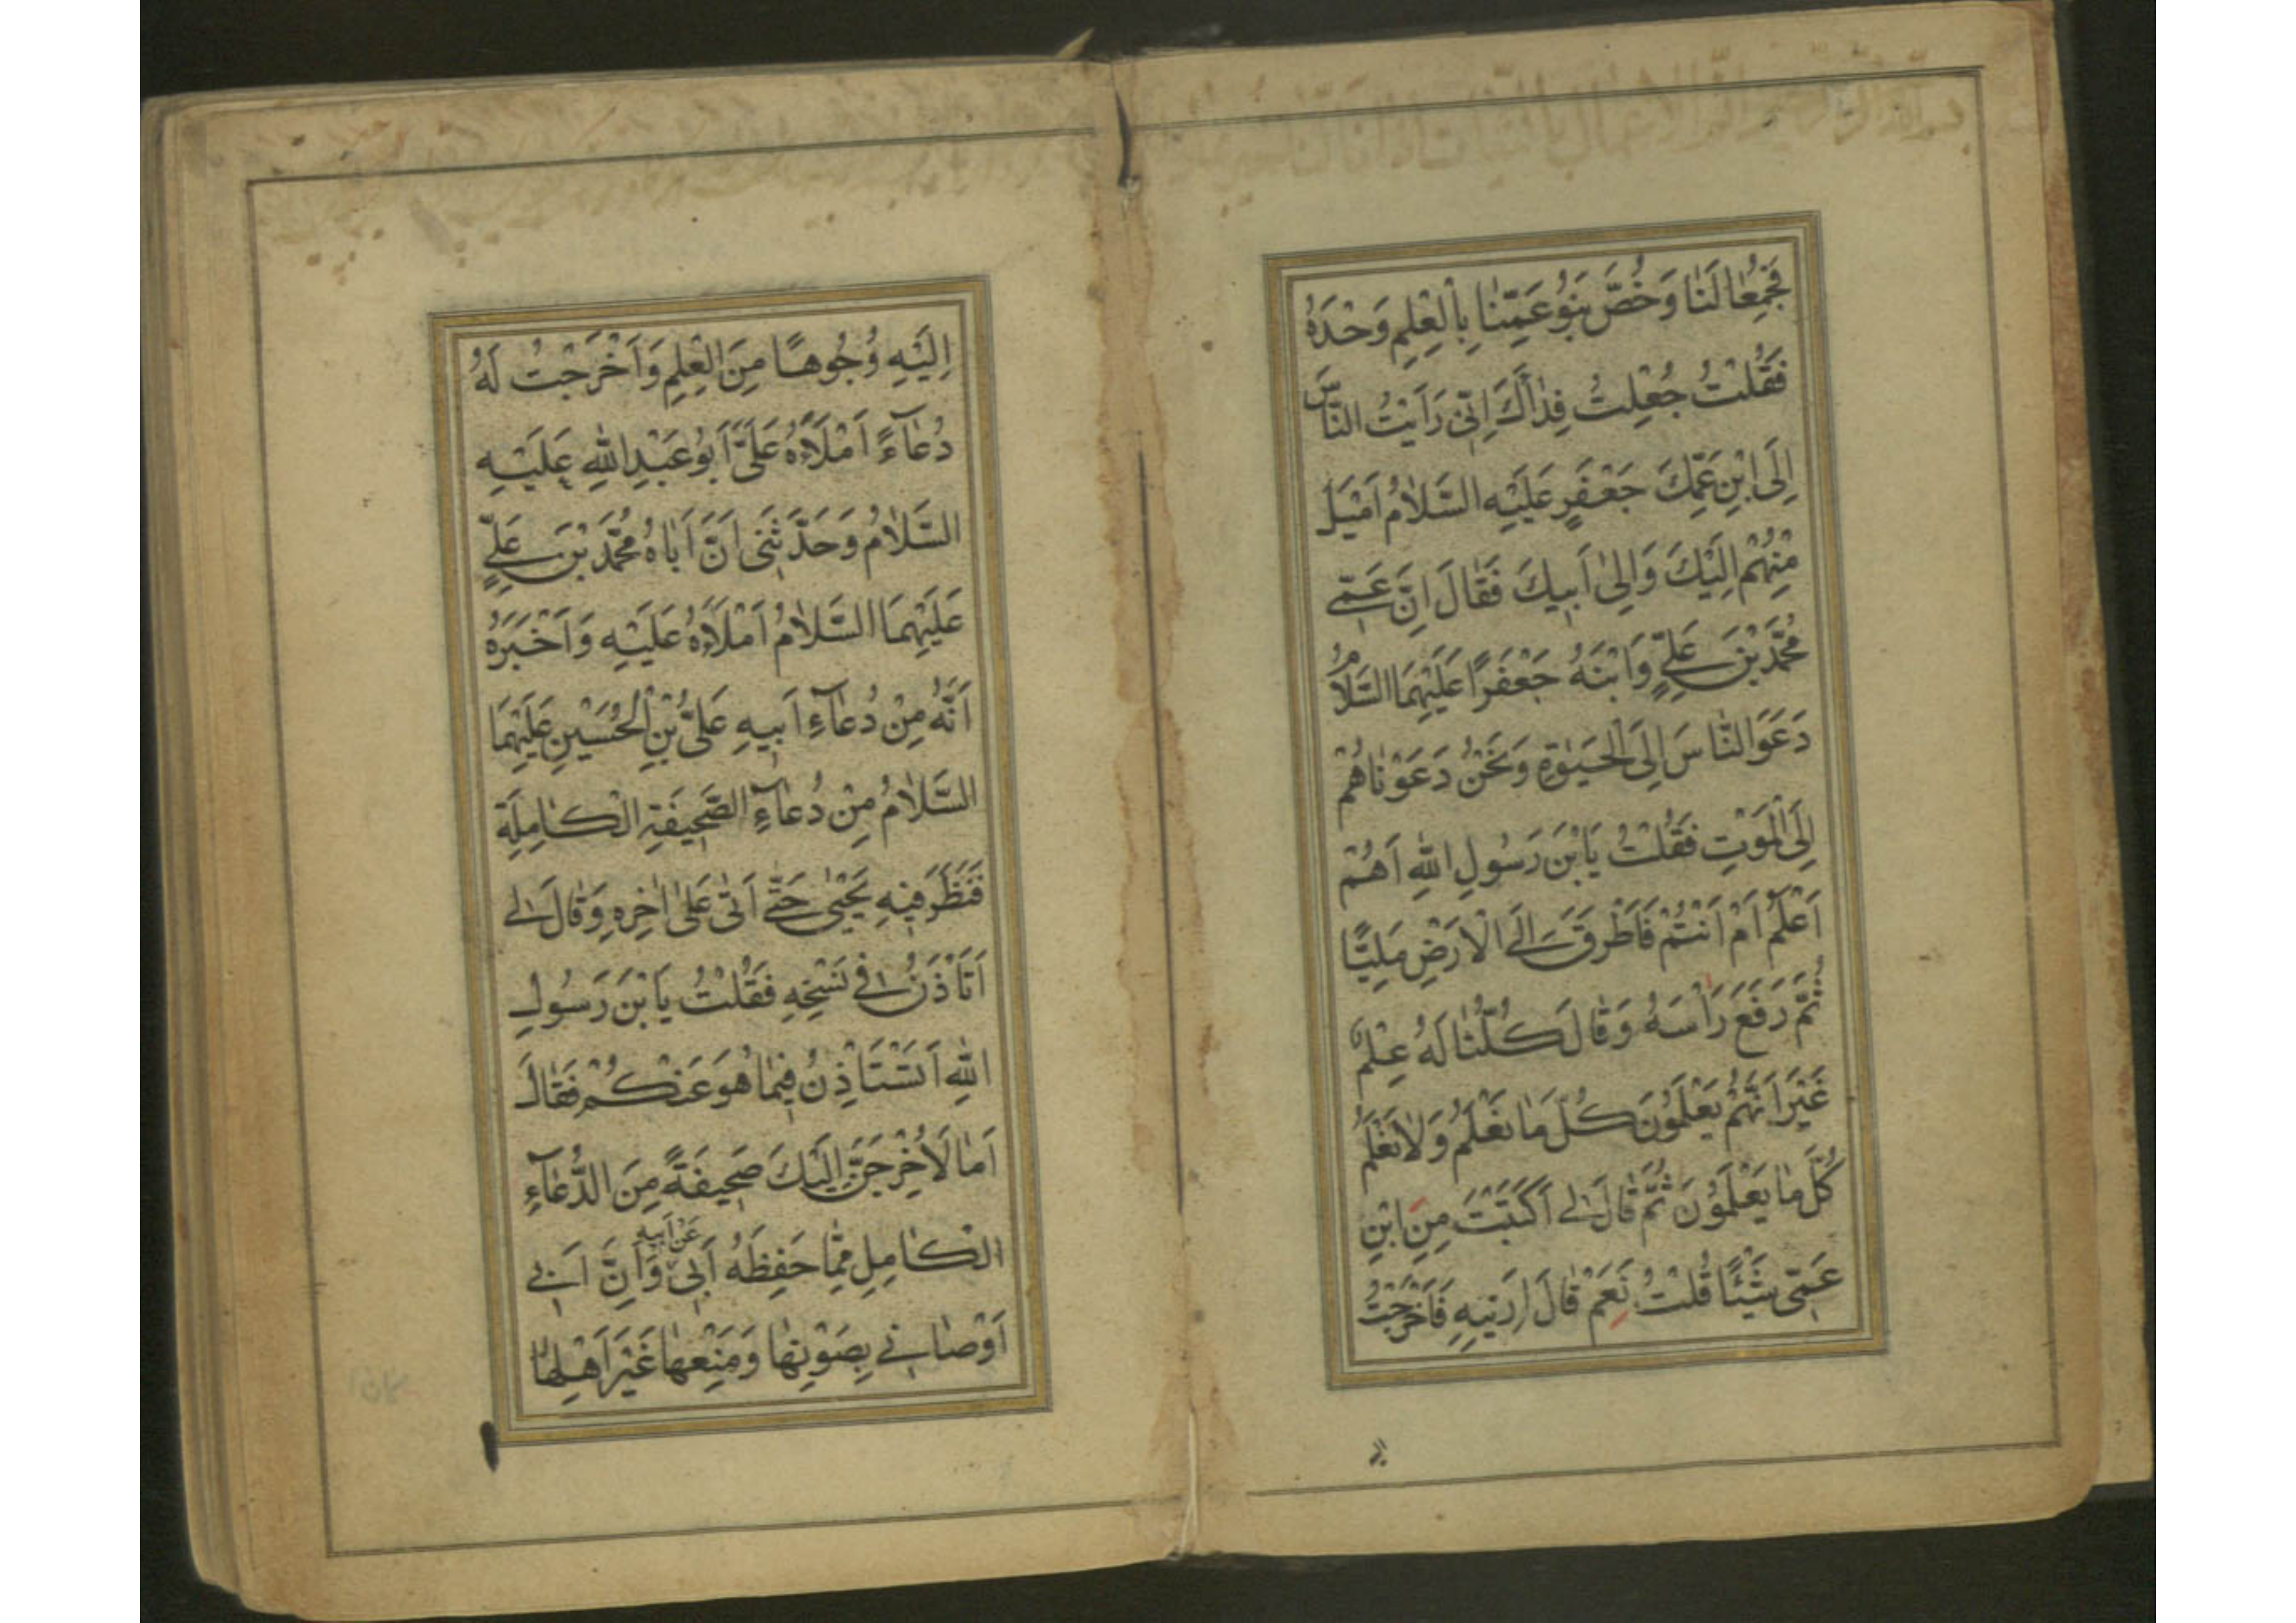 فَجُمِعٰا لَنٰا وَخُصَّ بَنُو عَمِّنٰا بِالْعِلْمِ وَحْدَهُ
فَقُلْتُ جُعِلْتُ فِدٰاكَ اِنّى رَاَيْتُ النّٰاسَ
اِلَى ابْنِ عَمِّكَ جَعْفَرٍ عَلَيْهِ السَّلٰامُ اَمْيَلَ
مِنْهُمْ اِلَيْكَ وَاِلىٰ اَبيكَ فَقٰالَ اِنَّ عَمّى
مُحَمَّدَ بْنَ عَلِيٍّ وَابْنَهُ جَعْفَرًا عَلَيْهِمَا السَّلٰامُ
دَعَوَا النّٰاسَ اِلَى الْحَيٰوةِ وَنَحْنُ دَعَوْنٰاهُمْ
اِلَى الْمَوْتِ فَقُلْتُ يَا بْنَ رَسُولِ اللّٰهِ اَهُمْ
اَعْلَمُ اَمْ اَنْتُمْ فَاَطْرَقَ اِلَى الْاَرْضِ مَلِيًّا
ثُمَّ رَفَعَ رَأْسَهُ وَقٰالَ كُلُّنٰا لَهُ عِلْمٌ
غَيْرَ اَنَّهُمْ يَعْلَمُونَ كُلَّ مٰا نَعْلَمُ وَلٰا نَعْلَمُ
كُلَّ مٰا يَعْلَمُونَ ثُمَّ قٰالَ لى اَكَتَبْتَ مِنَ ابْنِ
عَمّى شَيْئًا قُلْتُ نَعَمْ قٰالَ اَرِنيهِ فَاَخْرَجْتُ
اِلَيْهِ وُجُوهًا مِنَ الْعِلْمِ وَاَخْرَجْتُ لَهُ
دُعٰاءً اَمْلَاهُ عَلَىَّ اَبُو عَبْدِ اللّٰهِ عَلَيْهِ
السَّلٰامُ وَحَدَّثَنى اَنَّ اَبٰاهُ مُحَمَّدَ بْنَ عَلِيٍّ
عَلَيْهِمَا السَّلٰامُ اَمْلَاهُ عَلَيْهِ وَاَخْبَرَهُ
اَنَّهُ مِنْ دُعٰاءِ اَبيهِ عَلىِّ بْنِ الْحُسَيْنِ عَلَيْهِمَا
السَّلٰامُ مِنْ دُعٰاءِ الصَّحيفَةِ الْكٰامِلَةِ
فَنَظَرَ فيهِ يَحْيىٰ حَتّٰى اَتىٰ عَلىٰ اٰخِرِهِ وَقٰالَ لى
اَتَأْذَنُ فى نَسْخِهِ فَقُلْتُ يَا بْنَ رَسُولِ
اللّٰهِ اَتَسْتَأْذِنُ فيمٰا هُوَ عَنْكُمْ فَقٰالَ
اَمٰا لَاُخْرِجَنَّ اِلَيْكَ صَحيفَةً مِنَ الدُّعٰاءِ
الْكٰامِلِ مِمّٰا حَفِظَهُ اَبى عَنْ اَبيهِ وَاِنَّ اَبى
اَوْصٰانى بِصَوْنِهٰا وَمَنْعِهٰا غَيْرَ اَهْلِهٰا